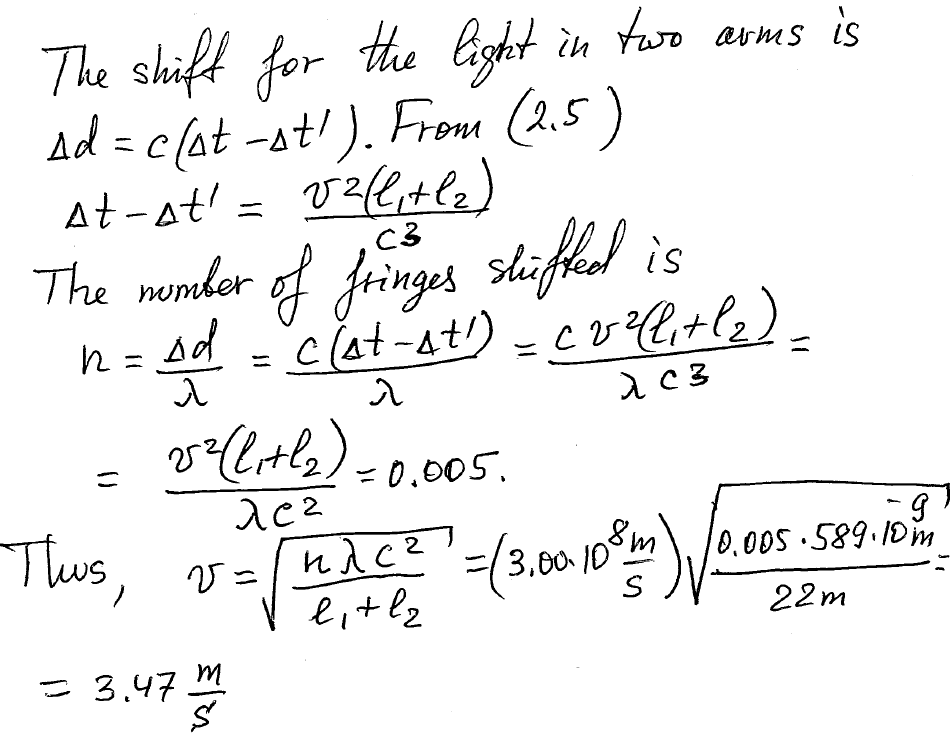 The shift for the light in two arms is
Δd = c(Δt - Δt'). From (2.5)
Δt - Δt' = v²(l₁+l₂)/c³
The number of fringes shifted is
n = Δd/λ = c(Δt - Δt')/λ = c v²(l₁+l₂)/λc³ =
= v²(l₁+l₂)/λc² = 0.005.
Thus, v = √(nλc²/(l₁+l₂)) = (3.00·10⁸ m/s) √(0.005·589·10⁻⁹m/22m) =
= 3.47 m/s